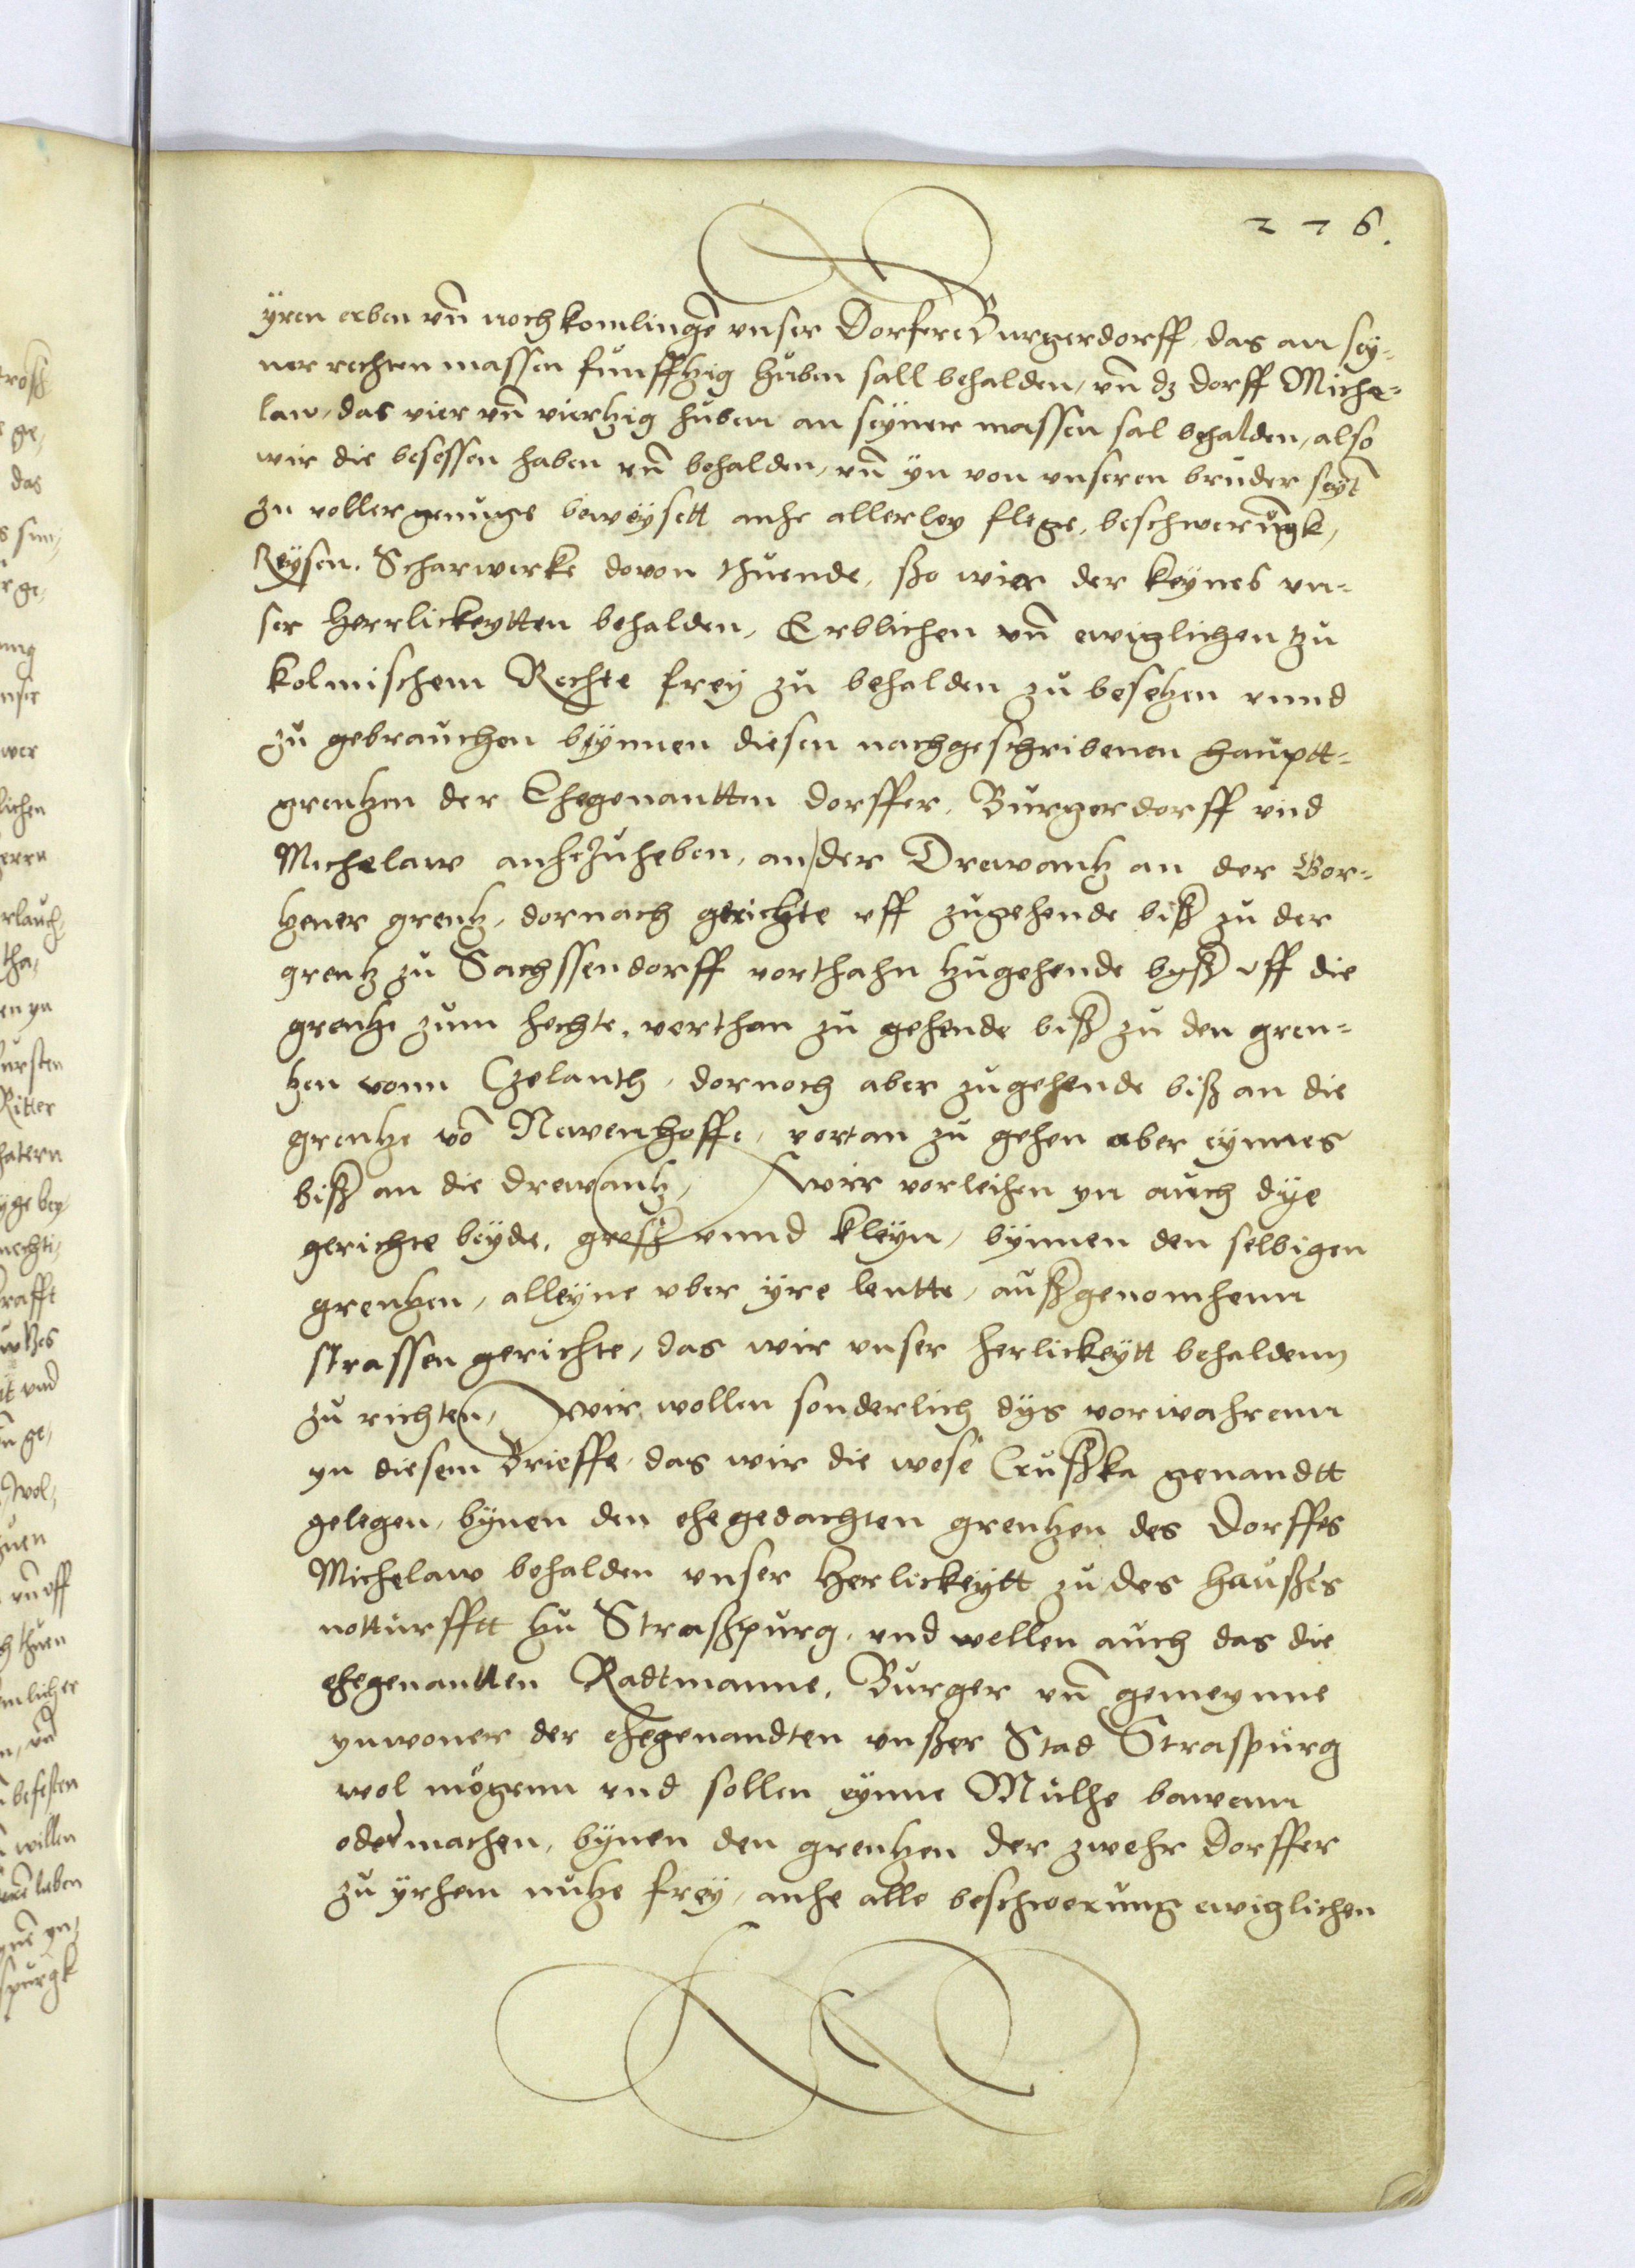 2 7 6.
ÿren erben vn̄ nochkomlingē vnser Dorfere Burgerdorff, das an sey-
ner rechten massen funffhzig hůben sall behalden, vn̄ dz dorff Miche-
law, das vier vn̄ viertzig hůben an seyner massen sal behalden, also
wir die besessen haben vn̄ behalden, vn̄ yn von vnseren brůder seyt
zu voller genuge beweysett anhe allerley flege, beschwerungk,
Reysen, Scharwerke dovon thuende, sso wier der keynes vn-
ser herrlickeytten behalden, Erblichen vn̄ ewiglichen tzu
kolmischem Rechte frey zu behalden zů besetzen vnnd
zů gebrauchen bynnen diesen nachgeschribenen hauptt-
grentzen der Ehegenantten dorffer, Burgerdorff vnd
Michelaw anhezuheben, an der Drewantz an der Gor-
tzener grentz, dornach gerichte vff zugehende biß zu der
grentz zu Sachssendorff vorthahn tzugehende byß vff die
grentze zum hechte, verthan zu gehende biß zu den gren-
tzen vonn Czelanth, dornoch aber zugehende biß an die
grentze vō Newenhoffe, vortan zu gehen aber eynnes
biß an die drewantz, Wir vorleihen yn auch dÿe
gerichte beyde, groß vnnd kleyn, bynnen den selbigen
grentzen, alleyne vber yre leutte, außgenomhenn
strassen gerichte, das wir vnser herlickeytt behaldenn
zů richten, Wir wollen sonderlich dys vorwahrenn
yn diesem Brieffe, das wir die wese Crußka genandtt
gelegen, bynen den ehegedachten grentzen des Dorffes
Michelaw behalden vnser herlickeytt zu des haußes
notturfftt tzu Straßpurg, vnd wellen auch das die
ehegenantten Radtmanne, Burger vn̄ gemeynne
ynwoner der ehegenandten vnßer Stad Straspurg
wol mögenn vnd sollen eynne Mulhe bawenn
oder machen, bynen den grentzen der zwehr Dorffer
zu yrhem nutze frey, anhe alle beschwerung ewiglichen